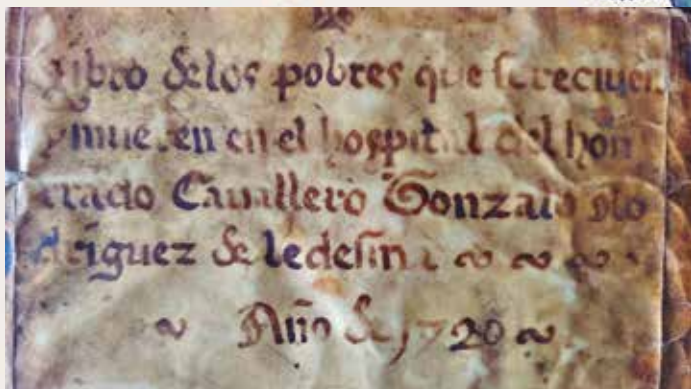 Libro de los pobres que se reciuen
y mueren en el hospital del hon
rrado Cauallero Gonzalo Ro
driguez de ledesma
Año de 1720